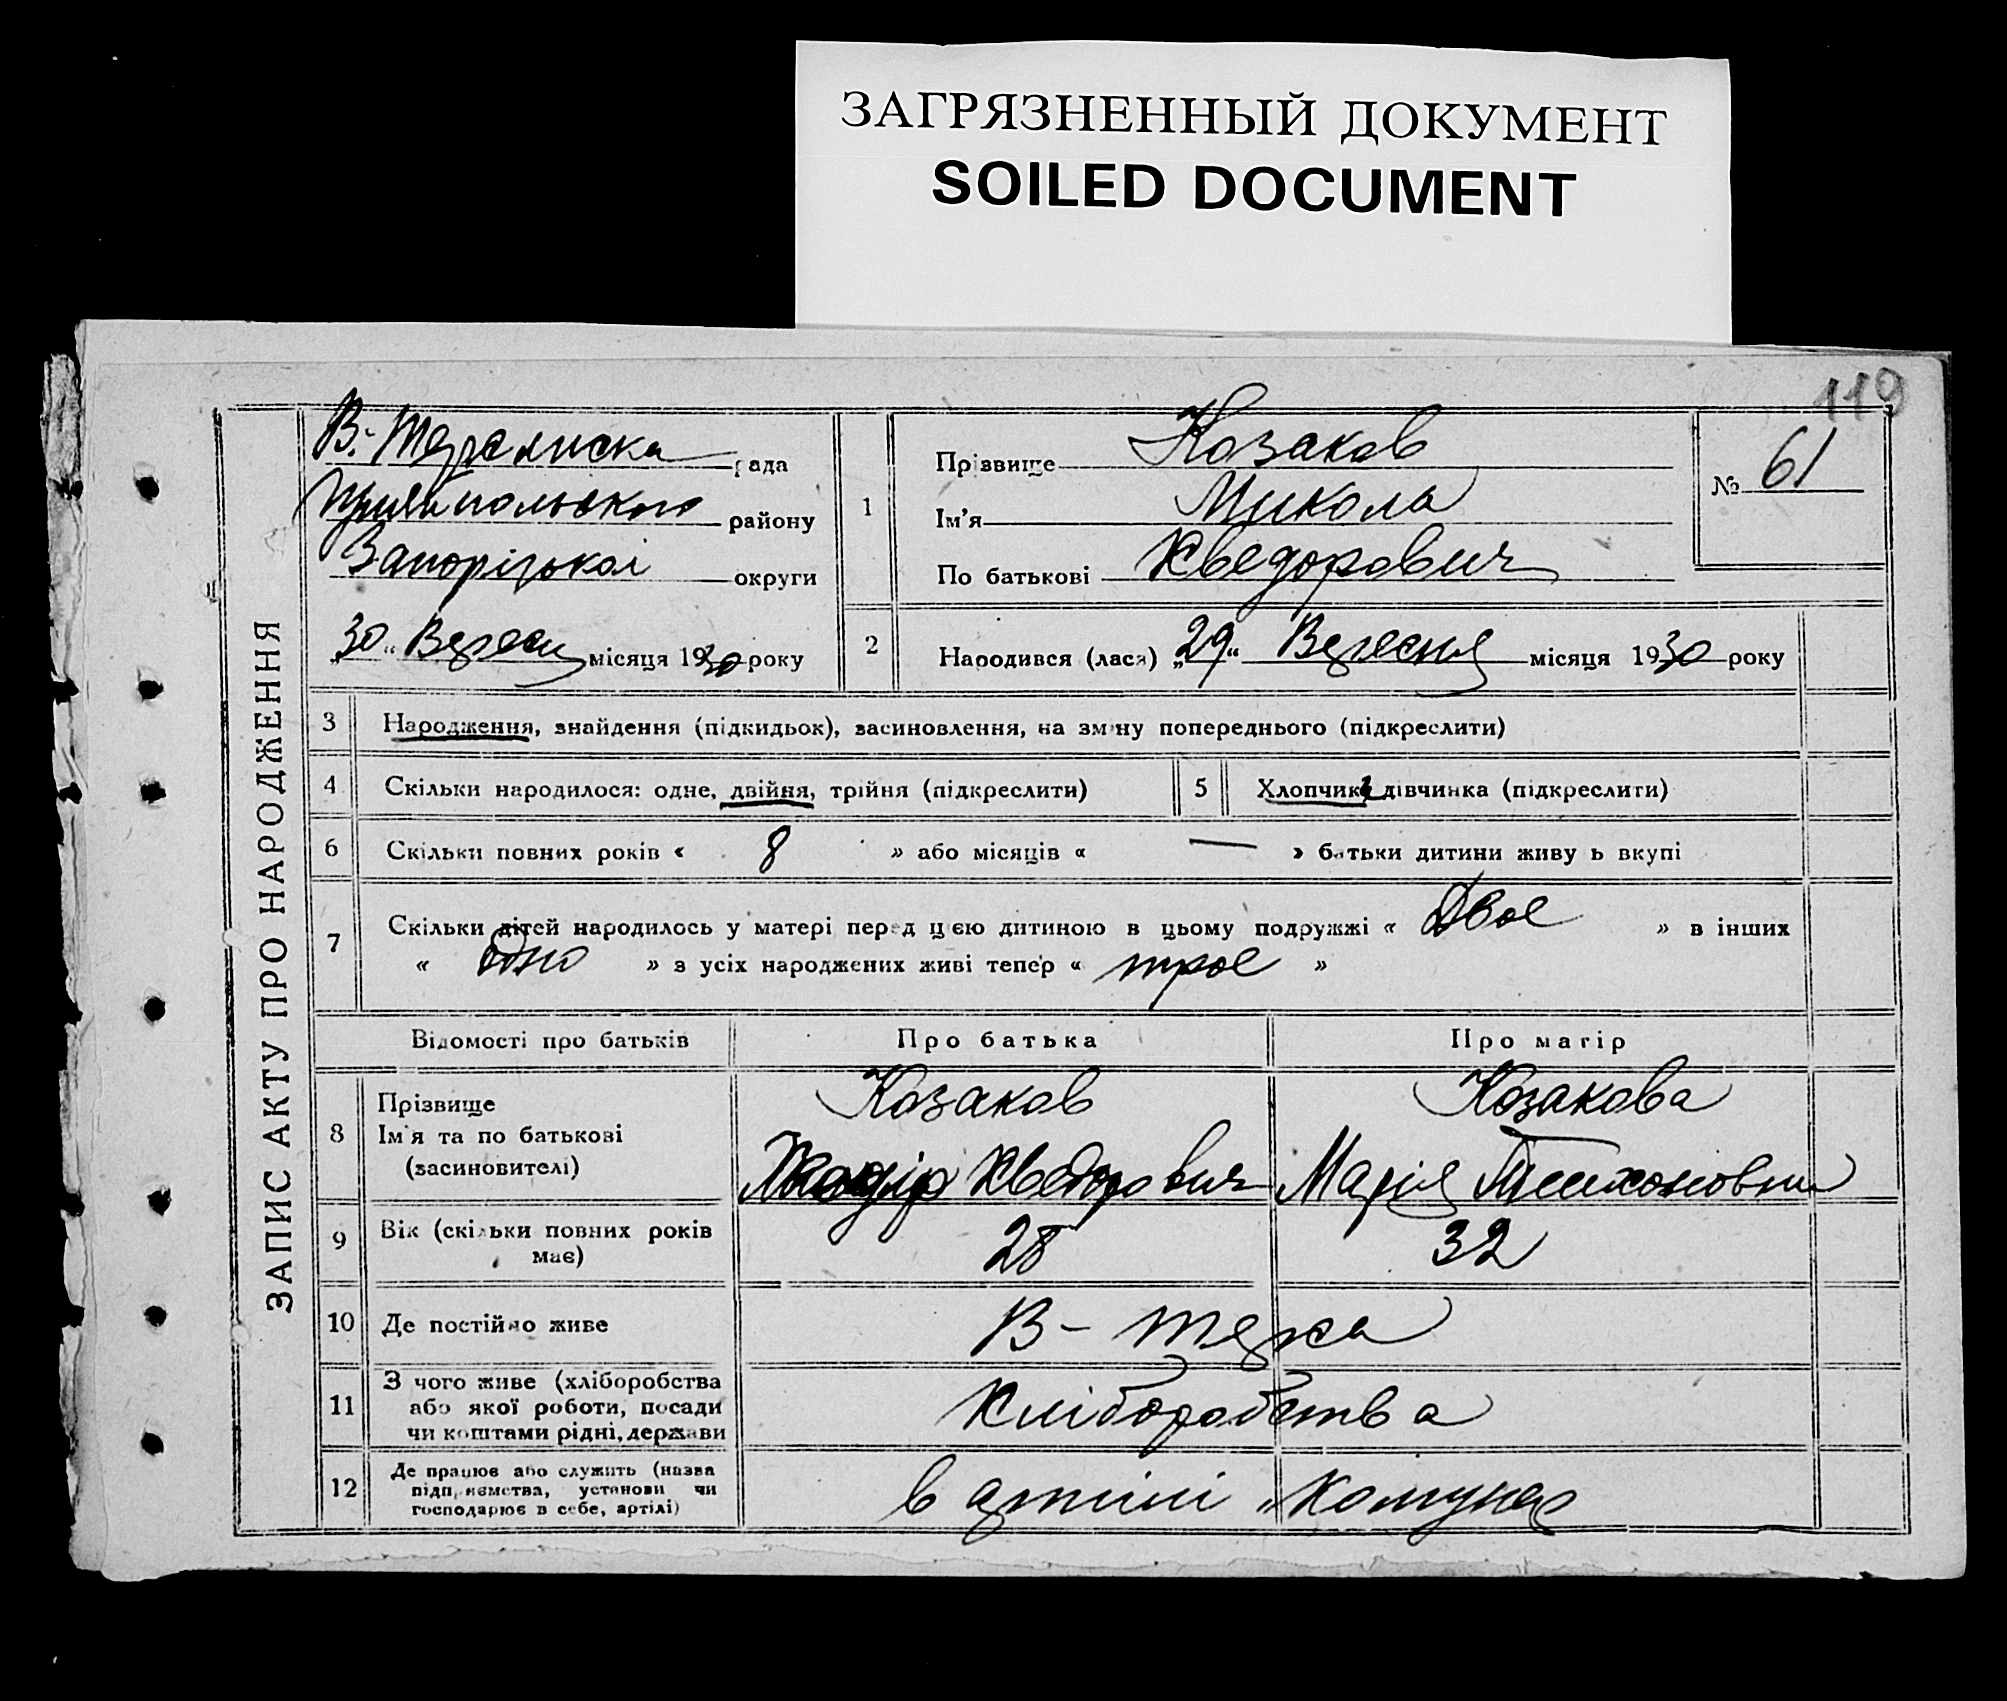 ЗАГРЯЗНЕННЫЙ ДОКУМЕНТ
SOILED DOCUMENT
119
ЗАПИС АКТУ ПРО НАРОДЖЕННЯ
рада
району
Запорізької округи
"30" Вересн місяця 1930 року
1
Прізвище Козаков
Ім'я Микола
По батькові Хведорович
№ 61
2 Народився (лася) "29" Вересня місяця 1930 року
3 Народження, знайдення (підкидьок), засиновлення, на зміну попереднього (підкреслити)
4 Скільки народилося: одне, двійня, трійня (підкреслити)
5 Хлопчик, дівчинка (підкреслити)
6 Скільки повних років « 8 » або місяців « — » батьки дитини живуть вкупі
7 Скільки дітей народилось у матері перед цією дитиною в цьому подружжі « Двоє » в інших
« одно » з усіх народжених живі тепер « троє »
Відомості про батьків
Про батька
Про матір
8 Прізвище
Ім'я та по батькові
(засиновителі)
Козаков
Хведорович
Козакова
Марія Тихоновна
9 Вік (скільки повних років
має)
28
32
10 Де постійно живе
В-Терса
11 З чого живе (хліборобства
або якої роботи, посади
чи коштами рідні, держави
Хліборобства
12 Де працює або служить (назва
підприємства, установи чи
господарює в себе, артілі)
в артілі "Комунар